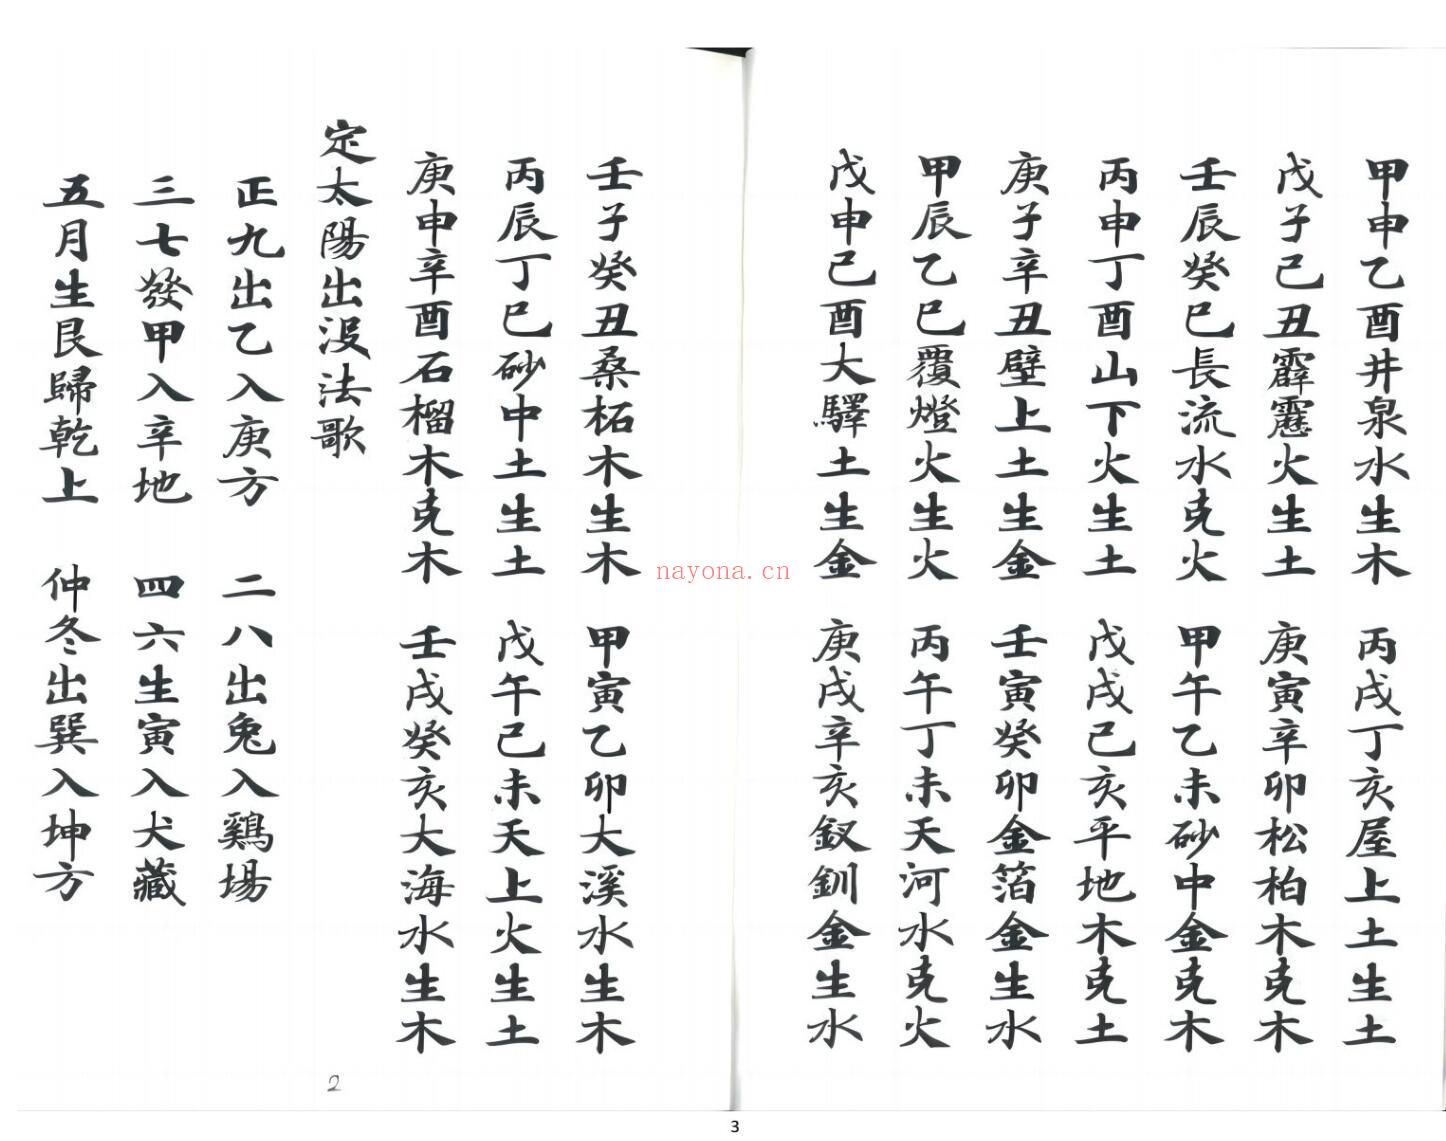 甲申乙酉井泉水生木　丙戌丁亥屋上土生土
戊子己丑霹靂火生土　庚寅辛卯松柏木克木
壬辰癸巳長流水克火　甲午乙未砂中金克木
丙申丁酉山下火生土　戊戌己亥平地木克土
庚子辛丑壁上土生金　壬寅癸卯金箔金生水
甲辰乙巳覆燈火生火　丙午丁未天河水克火
戊申己酉大驛土生金　庚戌辛亥釵釧金生水
壬子癸丑桑柘木生木　甲寅乙卯大溪水生木
丙辰丁巳砂中土生土　戊午己未天上火生土
庚申辛酉石榴木克木　壬戌癸亥大海水生木
定太陽出沒法歌
正九出乙入庚方　二八出兔入鷄場
三七發甲入辛地　四六生寅入犬藏
五月生艮歸乾上　仲冬出巽入坤方
nayona.cn
2
3